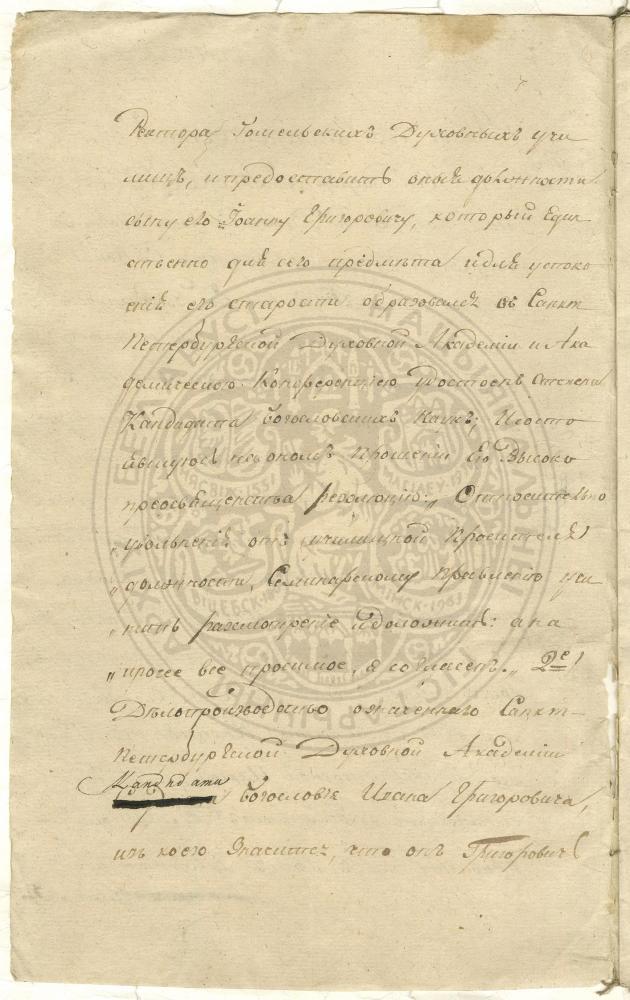 Ректора Гомельскихъ Духовныхъ учи
лищъ, и предоставить оныя должности
сыну его Іоанну Григоровичу, который един
ственно для сего предмѣта и для успоко
енія его старости образовался въ Санкт
Петербургской Духовной Академіи и Ака
демическою Конференціею удостоенъ степени
Кандидата богословскихъ Наукъ; и состо
явшуюся на ономъ прошеніи Его Высоко
преосвященства резолюцію: „Относительно
„увольненія отъ училищной просителя
„должности, Семинарскому Правленію учи
„нить разсмотреніе и доложить: а на
„прочее все просимое, я согласенъ„ 2е)
Дѣлопроизводство означеннаго Санкт-
Петербургской Духовной Академіи
Кандидата
богословія Ивана Григоровича,
изъ коего значится, что онъ Григоровичь